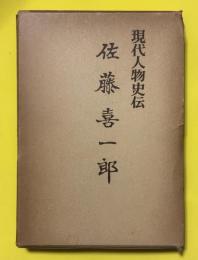 現代人物史伝
佐藤喜一郎